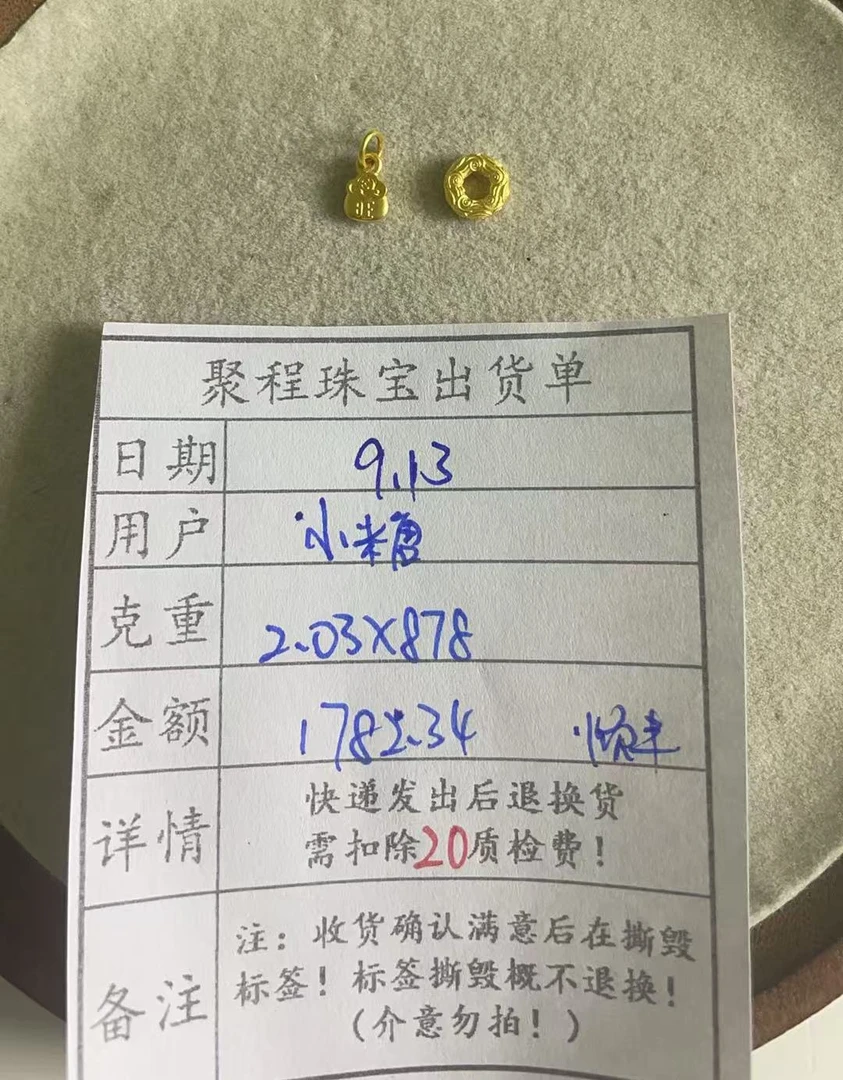 聚程珠宝出货单
日期 9.13
用户 小糖
克重 2.03X878
金额 1782.34
详情 快递发出后退换货
需扣除20质检费！
备注 注：收货确认满意后在撕毁
标签！标签撕毁概不退换！
（介意勿拍！）